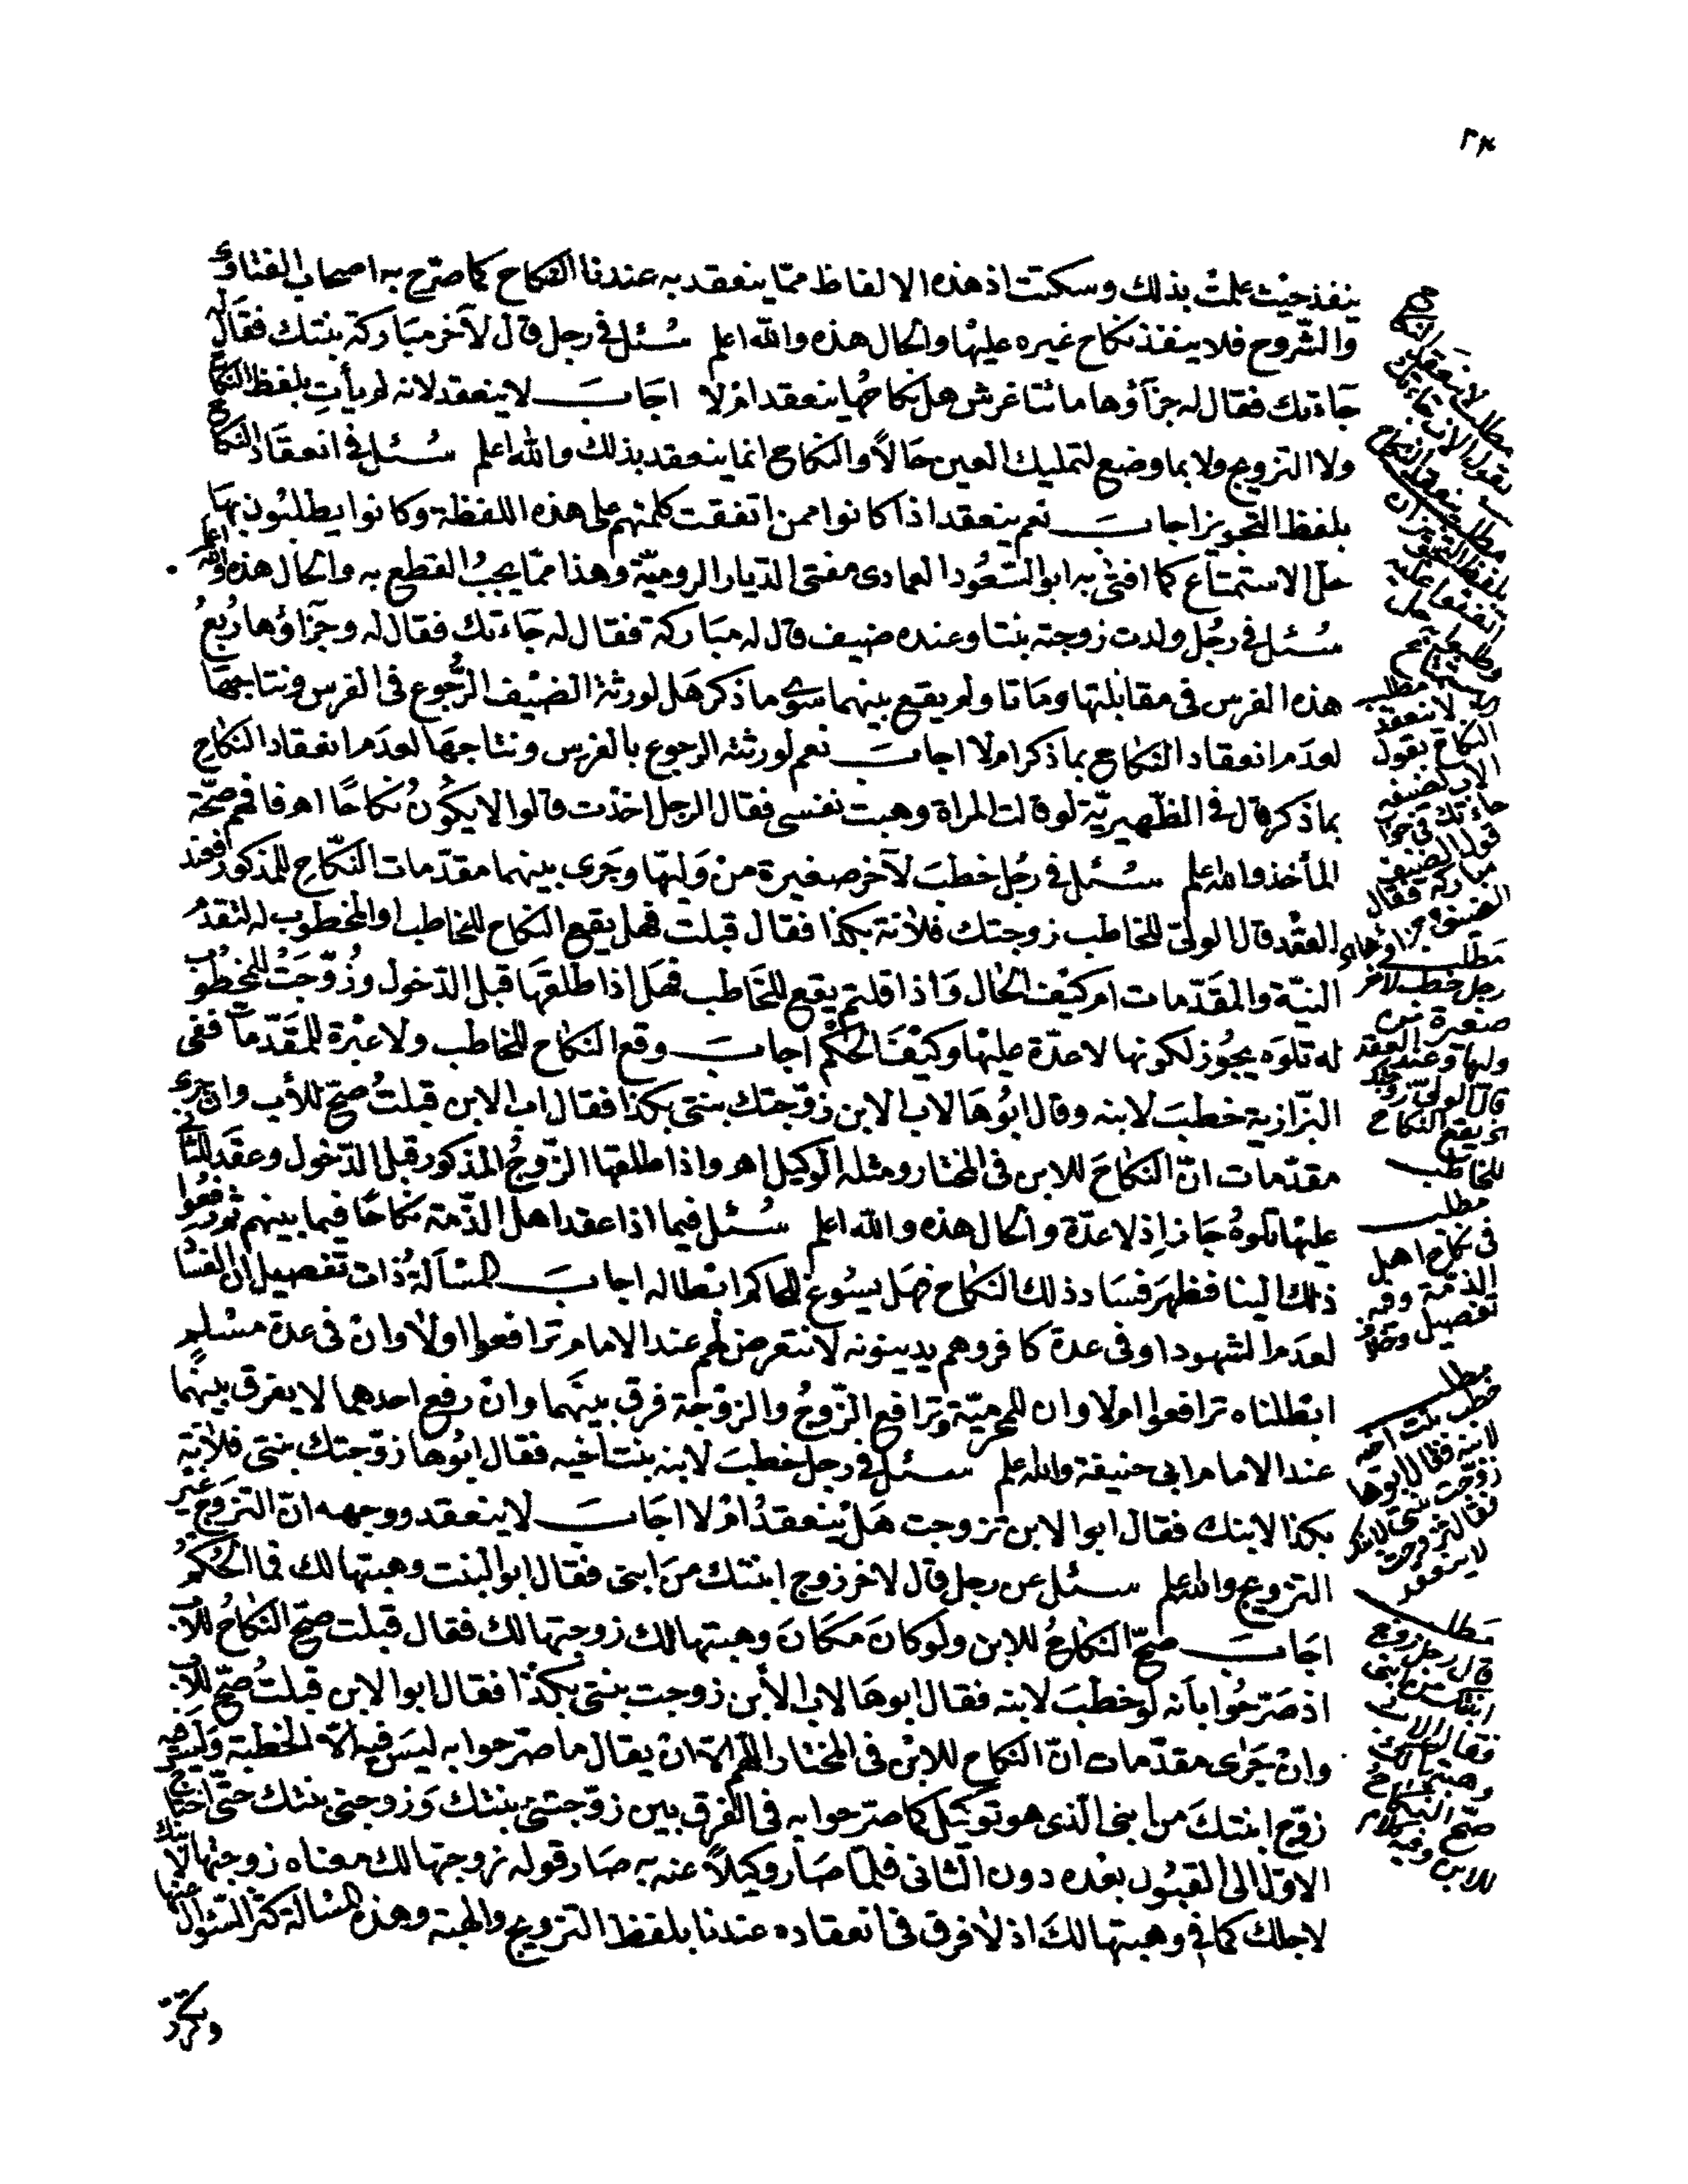 ٢٤
ينفذ حيث علمت بذلك وسكتت اذ هذه الالفاظ ممّا ينعقد به عندنا النكاح كما صرّح به اصحاب الفتاوى
والشّروح فلا ينفذ نكاح غيره عليها والحال هذه والله اعلم سُئل في رجل قال لآخر مبَاركة بنتك فقال له
جَاءتك فقال له جزآؤها مائتا غرش هل نكاحهما ينعقد امْ لا اجَابَ لا ينعقد لانه لم يأتِ بلفظ النكاح
ولا التزويج ولا بما وضع لتمليك العين حَالاً والنكاح انما ينعقد بذلك والله اعلم سُئل في انعقاد النكاح
بلفظ التجويز اجابَ نعم ينعقد اذا كانوا ممن اتفقت كلمتهم على هذه اللفظة وكانوا يطلبُون بهَا
حلّ الاستمتاع كما افتى به ابو السّعُود العمادى مفتى الديار الروميّة وهذا ممّا يجبُ القطع به والحال هذه والله اعلم
سُئل في رجُل ولدت زوجته بنتا وعنده ضيف قال له مبَاركة فقال له جَاءتك فقال له وجزَاؤها رُبعُ
هذه الفرس فى مقابلتها ومَاتا ولم يقع بينهما سوى ما ذكر هَل لورثة الضيْف الرُّجوع فى الفرس ونتاجهَا
لعدَم انعقاد النكاح بما ذكر ام لا اجابَ نعم لورثته الرجوع بالفرس ونتاجهَا لعدَم انعقاد النكاح
بما ذكر قال في الظّهيريّة لو قالت المراة وهبت نفسى فقال الرجل اخذت قالوا لا يكوُنُ نكاحًا اهـ فافهم صحّة
المأخذ والله اعلم سُئل في رجُل خطبَ لآخر صغيرة منْ وَليّها وجَرى بينهما مقدّمات النكّاح للمذكور فعند
العقْد قال الولىّ للخاطب زوجتك فلانة بكذا فقال قبلت فهل يقع النكاح للخاطب او المخطوب له لتقدّم
النيّة والمقدّمات ام كيْف الحَال وَاذا قلتم يقع للخَاطب فهَل اذا طلقهَا قبل الدّخول وزُوّجَتْ للمخطُوب
له تلوَه يجُوز لكونها لا عدّة عليهَا وكيْفَ الحُكْم اجابَ وقع النكاح للخاطب ولا عبْرة للمقَدّمات ففى
البزّازية خطبَ لابنه وقال ابُوهَا لاب الابن زوّجتك بنتى بكذا فقال اب الابن قبلتُ صحّ للأب وان جرى
مقدّمات انّ النكاحَ للابن فى المختار ومثله الوكيل اهـ واذا طلقها الزّوجُ المذكور قبل الدّخول وعقَد للثانى
عليْها تلوهُ جَاز اِذ لا عدّة والحال هذه والله اعلم سُئل فيما اذا عقد اهل الذّمة نكاحًا فيما بينهم ثم رفعُوا
ذلك الينا فظهرَ فسَاد ذلك النكاح فهَل يسُوغ للحاكم ابْطاله اجابَ المسْألة ذات تفصيل ان الفسَاد
لعدَم الشهود او فى عدة كافر وهم يدينونه لا نتعرض لهم عند الامام ترافعوا اولا وان فى عدة مسْلم
ابْطلناه ترافعوا ام لا وان للمحرميّة وترافع الزّوجُ والزوْجَة فرق بينهَما وانْ رفع احدهما لا يفرق بينهُما
عند الامام ابى حنيفة والله اعلم سئل في رجل خطبَ لابنه بنت اخيه فقال ابُوها زوّجتك بنتى فلانة
بكذا لابنك فقال ابو الابن تزوجت هَل يْنعقدُ امْ لا اجَابَ لا ينعقد ووجهه انّ التزوّج غير
التزويج والله اعلم سئل عن رجل قال لاخر زوج ابنتك منَ ابنى فقال ابو البنت وهبتها لك فما الحُكمُ
اجَابَ صحّ النكاحُ للابن ولو كانَ مَكَانَ وهبتها لك زوجتها لك فقال قبلت صحّ النكاحُ للاب
اذ صَرّحُوا بأنه لو خطبَ لابنه فقال ابوهَا لاب الأبن زوجت بنتى بكذا فقال ابوا لابن قبلتُ صحّ للاب
وانْ جَرى مقدّمات انّ النكاح للابْن فى المختار اللهمّ الّا انْ يقال ما صَرّحوا به ليسَ فيه الّا الخطبة وَليْس فيه
زوّج ابنتكَ من ابنى الّذى هو توكيْل كما صرّحوا به فى الفرق بين زوّجتنى بنتك وَزوجنى بنتك حتّى احتاج
الاوّل الى القبُول بعْده دون الثّانى فلمّا صَار وكيلاً عنه به صَار قوله زوجتها لك معناه زوجتها لابنك
لاجلك كما في وهبتها لكَ اذ لا فرق فى انعقاده عندنا بلفظ التزويج والهبة وهذه المسْالة كثر السّؤال عنها
مطلب لا ينعقد
النكاح
مطلب ينعقد النكاح
مطلب
لا ينعقد
النكاح بقول
الاب لضيفه
جاءتك فى جواب
قول الضيف
مباركة فقال
الضيف جزاؤها
مَطلب في
رجل خطب لاخر
صغيرة من
وليها وعند العقد
قال الولىّ زوجتك
يقع النكاح
للخاطب
مطلب
فى نكاح اهل
الذمّة وفيه
تفصيل
مطلب
خطب بنت اخيه
لابنه فقال ابوها
زوجت بنتى لابنك
فقال تزوجت
لا ينعقد
مَطلب
قال رجل زوج
ابنتك من ابنى
فقال الاب
وهبتها لك
صحّ النكاح
للابن وفيه كلام